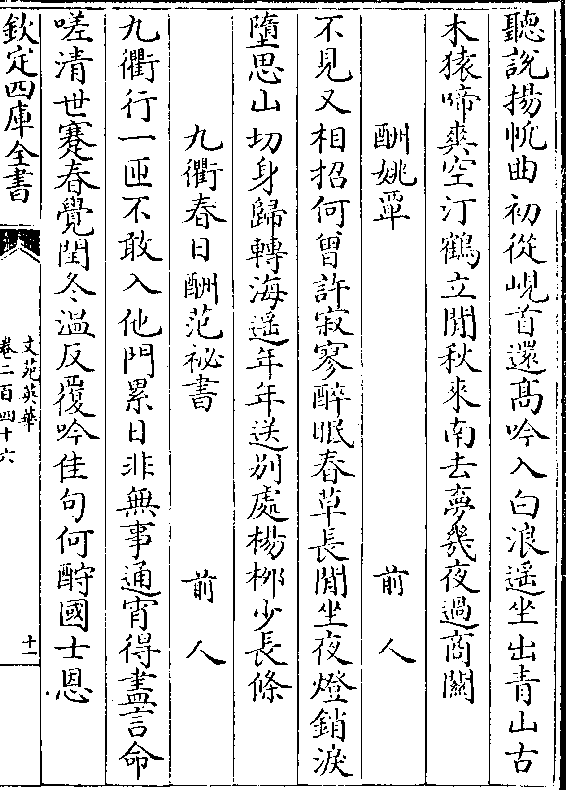 聽說揚帆曲初從峴首還髙吟入白浪遥坐出青山古
木猿啼爽空汀鶴立閒秋來南去夢幾夜過商關
酬姚覃 前人
不見又相招何曽許寂寥醉眠春草長閒坐夜燈銷淚
墮思山切身歸轉海遥年年送別處楊栁少長條
九衢春日酬范祕書 前人
九衢行一匝不敢入他門累日非無事通宵得盡言命
嗟清世蹇春覺閏冬温反覆吟佳句何酧國士恩
欽定四庫全書
文苑英華
卷二百四十六
十一